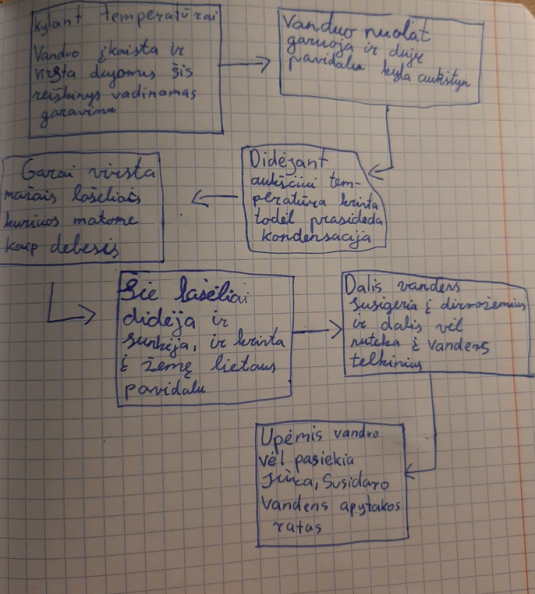 Kylant temperatūrai
Vanduo įkaista ir
virsta dujomis šis
reiškinys vadinamas
garavimu
Vanduo nuolat
garuoja ir dujų
pavidalu kyla aukštyn
Didėjant
aukščiui tem-
peratūra krinta
todėl prasideda
kondensacija
Garai virsta
mažais lašeliais
kuriuos matome
kaip debesis
Šie lašeliai
didėja ir
sunkėja, ir krinta
į žemę lietaus
pavidalu
Dalis vandens
susigeria į dirvožemius
ir dalis vėl
nuteka į vandens
telkinius
Upėmis vanduo
vėl pasiekia
jūra, Susidaro
vandens apytakos
ratas